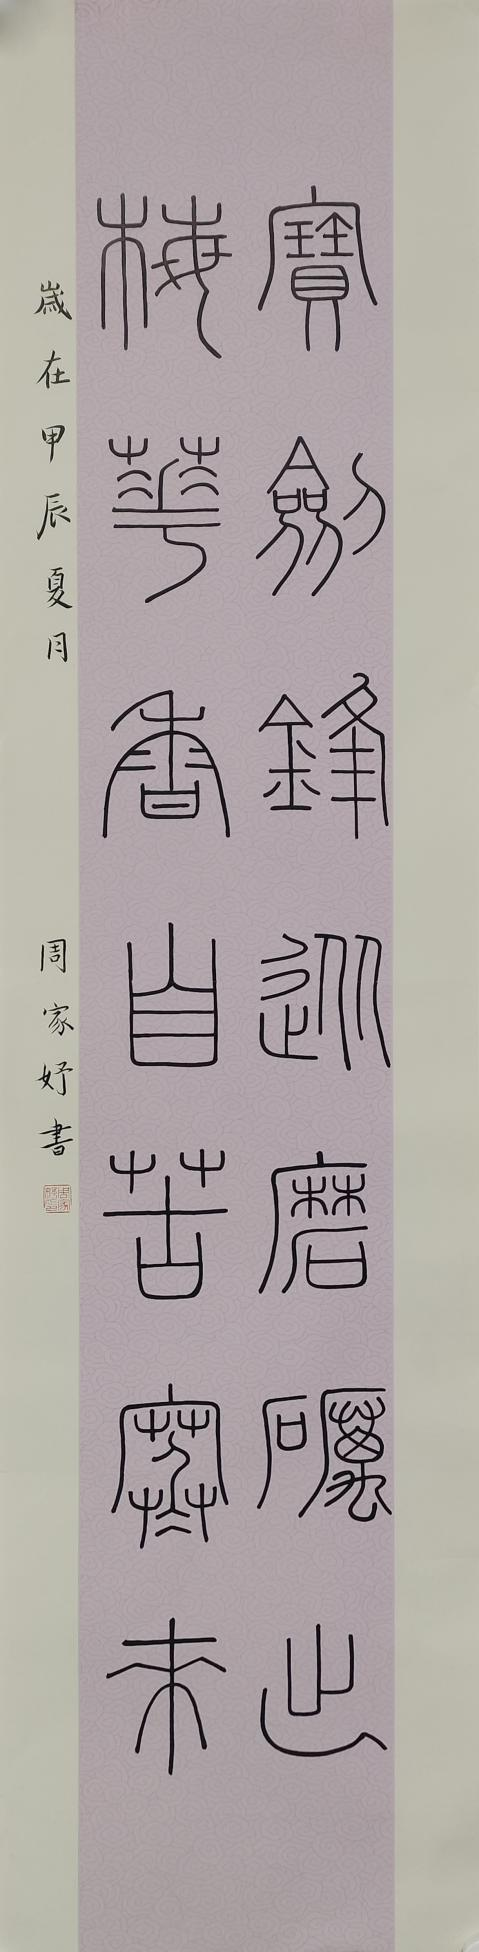 寶劍鋒從磨礪出
梅華香自苦寒來
歲在甲辰夏月
周家妤書